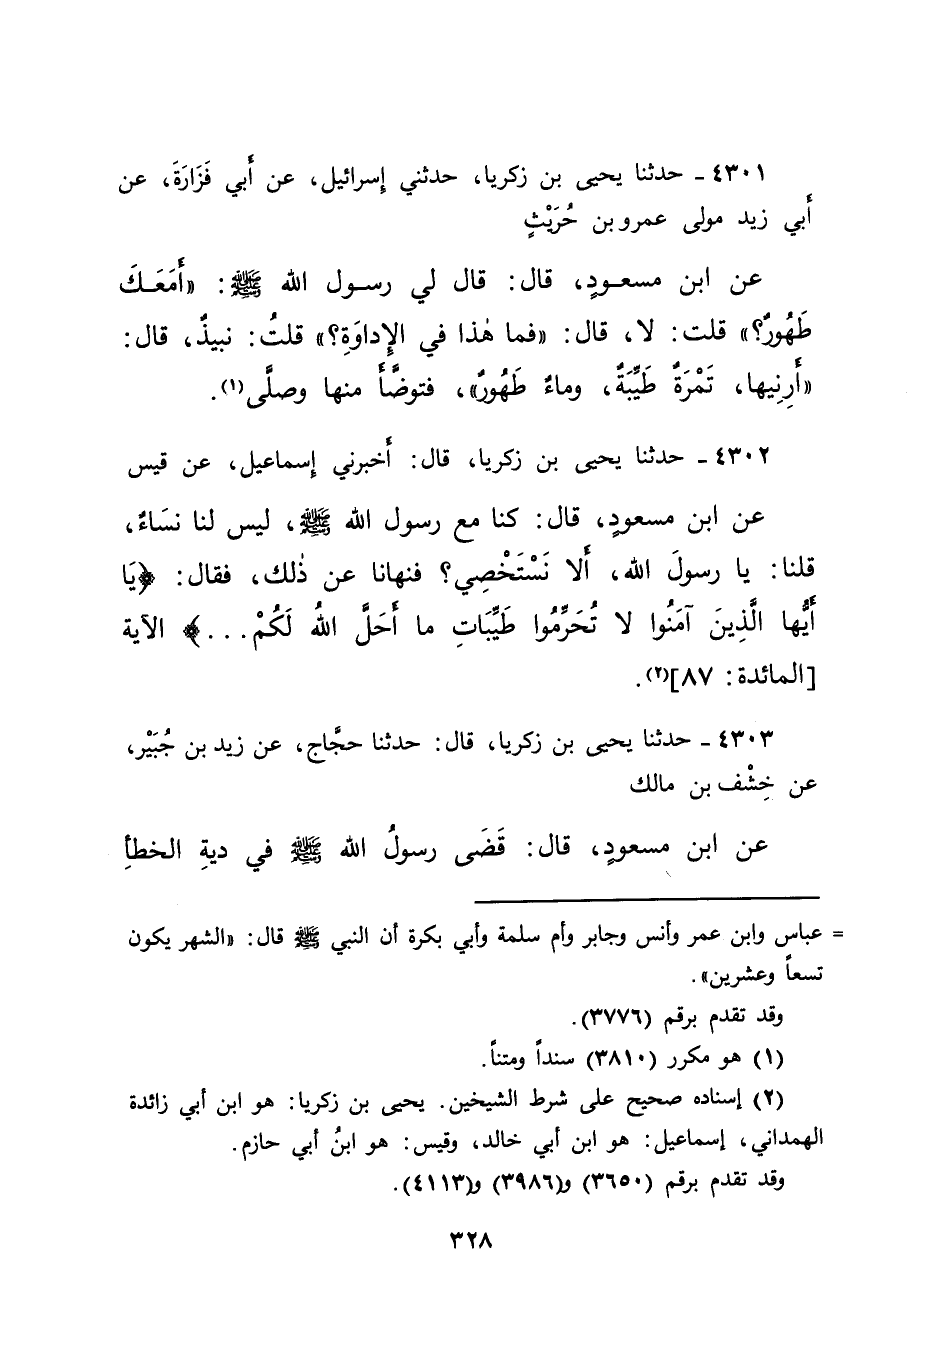 ٤٣٠١ ـ حدثنا يحيى بن زكريا، حدثني إسرائيل، عن أَبي فَزَارَةَ، عن
أَبي زيد مولى عمرو بن حُرَيْثٍ
عن ابن مسعـودٍ، قال: قال لي رسـول الله ﷺ: «أَمَعَـكَ
طَهُورٌ؟» قلت: لا، قال: «فما هٰذا في الإِداوَةِ؟» قلتُ: نبيذٌ، قال:
«أَرِنِيها، تَمْرَةٌ طَيِّبَةٌ، وماءٌ طَهُورٌ»، فتوضَّأَ منها وصلَّى(١).
٤٣٠٢ ـ حدثنا يحيى بن زكريا، قال: أَخبرني إسماعيل، عن قيس
عن ابن مسعودٍ، قال: كنا مع رسول الله ﷺ، ليس لنا نسَاءٌ،
قلنا: يا رسولَ الله، أَلا نَسْتَخْصِي؟ فنهانا عن ذٰلك، فقال: ﴿يَا
أَيُّها الَّذِينَ آمَنُوا لا تُحَرِّمُوا طَيِّبَاتِ ما أَحَلَّ اللهُ لَكُمْ...﴾ الآية
[المائدة: ٨٧](٢).
٤٣٠٣ ـ حدثنا يحيى بن زكريا، قال: حدثنا حجَّاج، عن زيد بن جُبَيْر،
عن خِشْف بن مالك
عن ابن مسعودٍ، قال: قَضَى رسولُ الله ﷺ في ديةِ الخطأِ
= عباس وابن عمر وأنس وجابر وأم سلمة وأبي بكرة أن النبي ﷺ قال: «الشهر يكون
تسعاً وعشرين».
وقد تقدم برقم (٣٧٧٦).
(١) هو مكرر (٣٨١٠) سنداً ومتناً.
(٢) إسناده صحيح على شرط الشيخين. يحيى بن زكريا: هو ابن أبي زائدة
الهمداني، إسماعيل: هو ابن أبي خالد، وقيس: هو ابنُ أبي حازم.
وقد تقدم برقم (٣٦٥٠) و(٣٩٨٦) و(٤١١٣).
٣٢٨